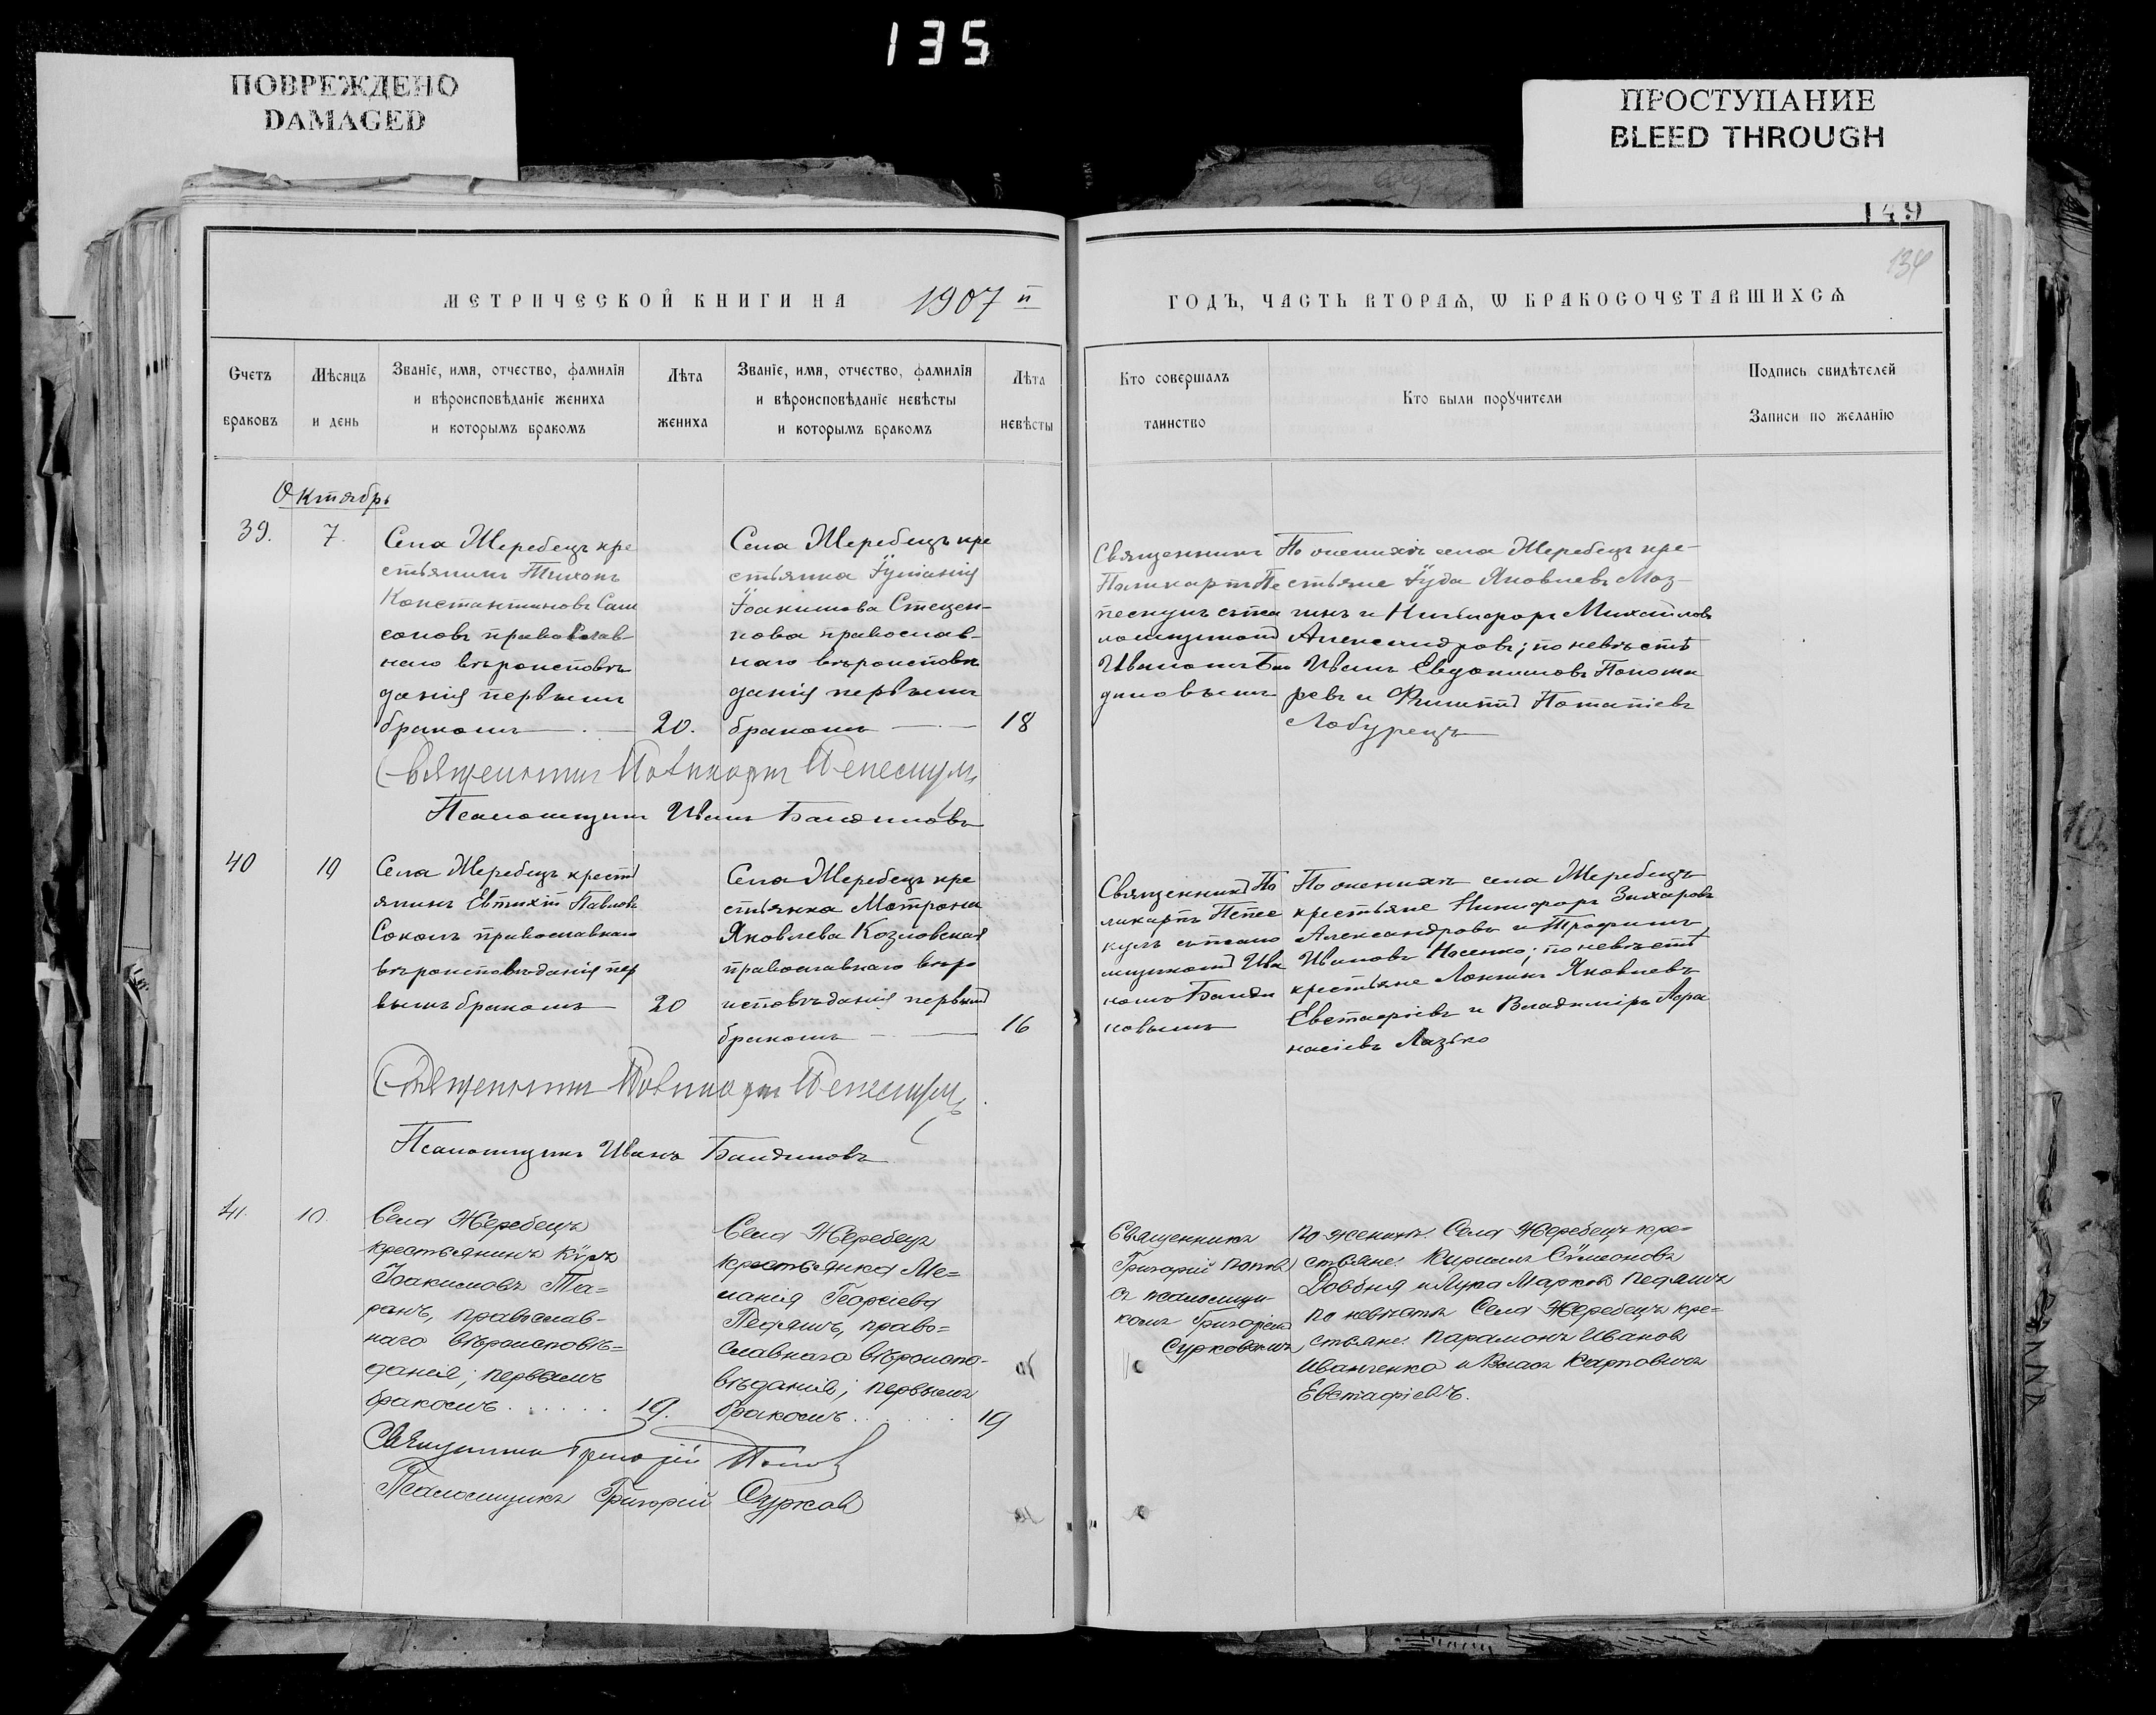 135
ПОВРЕЖДЕНО
DAMAGED
ПРОСТУПАНИЕ
BLEED THROUGH
149
134
МЕТРИЧЕСКОЙ КНИГИ НА 1907 й
ГОДЪ, ЧАСТЬ ВТОРАѦ, Ѡ БРАКОСОЧЕТАВШИХСѦ
Счетъ
браковъ
Мѣсяцъ
и день
Званіе, имя, отчество, фамилія
и вѣроисповѣданіе жениха
и которымъ бракомъ
Лѣта
жениха
Званіе, имя, отчество, фамилія
и вѣроисповѣданіе невѣсты
и которымъ бракомъ
Лѣта
невѣсты
Кто совершалъ
таинство
Кто были порꙋчители
Подпись свидѣтелей
Записи по желанію
Октябрь
39.
7.
Села Жеребецъ кре
стьянинъ Тихонъ
Константиновъ Сам
соновъ православ-
наго вѣроисповѣ
данія первымъ
бракомъ
20.
Села Жеребецъ кре
стьянка Іуліанія
Іоакимова Стецен-
кова православ-
наго вѣроисповѣ
данія первымъ
бракомъ
18
Священникъ
Поликарпъ Пе
пескулъ съ пса
ломщикомъ
Иваномъ Бан
диновымъ
По женихѣ села Жеребецъ кре-
стьяне Іуда Яковлевъ Моз-
и Никифоръ Михайловъ
Александровъ; по невѣстѣ
Иванъ Евдокимовъ Понома
ревъ и Филиппъ Потапіевъ
Лобурецъ
Священникъ Поликарпъ Пепескулъ
Псаломщикъ Иванъ Бандиновъ
40
19
Села Жеребецъ кресть
янинъ Евтихій Павловъ
Соколъ православнаго
вѣроисповѣданія пер
вымъ бракомъ
20
Села Жеребецъ кре
стьянка Матрона
Яковлева Козловская
православнаго вѣро
исповѣданія первымъ
бракомъ
16
Священникъ По
ликарпъ Пепес
кулъ съ псало
мщикомъ Ива
номъ Банди
новымъ
По женихѣ села Жеребецъ
крестьяне Никифоръ Захаровъ
Александровъ и Трофимъ
Ивановъ Носенко; по невѣстѣ
крестьяне Логинъ Яковлевъ
Евстафіевъ и Владиміръ Афа
насіевъ Лазько
Священникъ Поликарпъ Пепескулъ
Псаломщикъ Иванъ Бандиновъ
41.
10.
Села Жеребецъ
крестьянинъ Кѵръ
Іоакимовъ Та=
ранъ, православ-
наго вѣроисповѣ=
данія; первымъ
бракомъ
19.
Села Жеребецъ
крестьянка Ме=
ланія Георгіева
Педяшъ, право=
славнаго вѣроиспо-
вѣданія; первымъ
бракомъ
19
Священникъ
Григорій Поповъ
съ псаломщи
комъ Григоріемъ
Сурковымъ
По женихѣ: Села Жеребецъ кре=
стьяне: Кириллъ Сѵмеоновъ
Довбня и Лука Марковъ Педяшъ
по невѣстѣ Села Жеребецъ кре=
стьяне: Парамонъ Ивановъ
Иванченко и Власъ Карповичъ
Евстафіевъ.
Священникъ Григорій Поповъ
Псаломщикъ Григорій Сурковъ